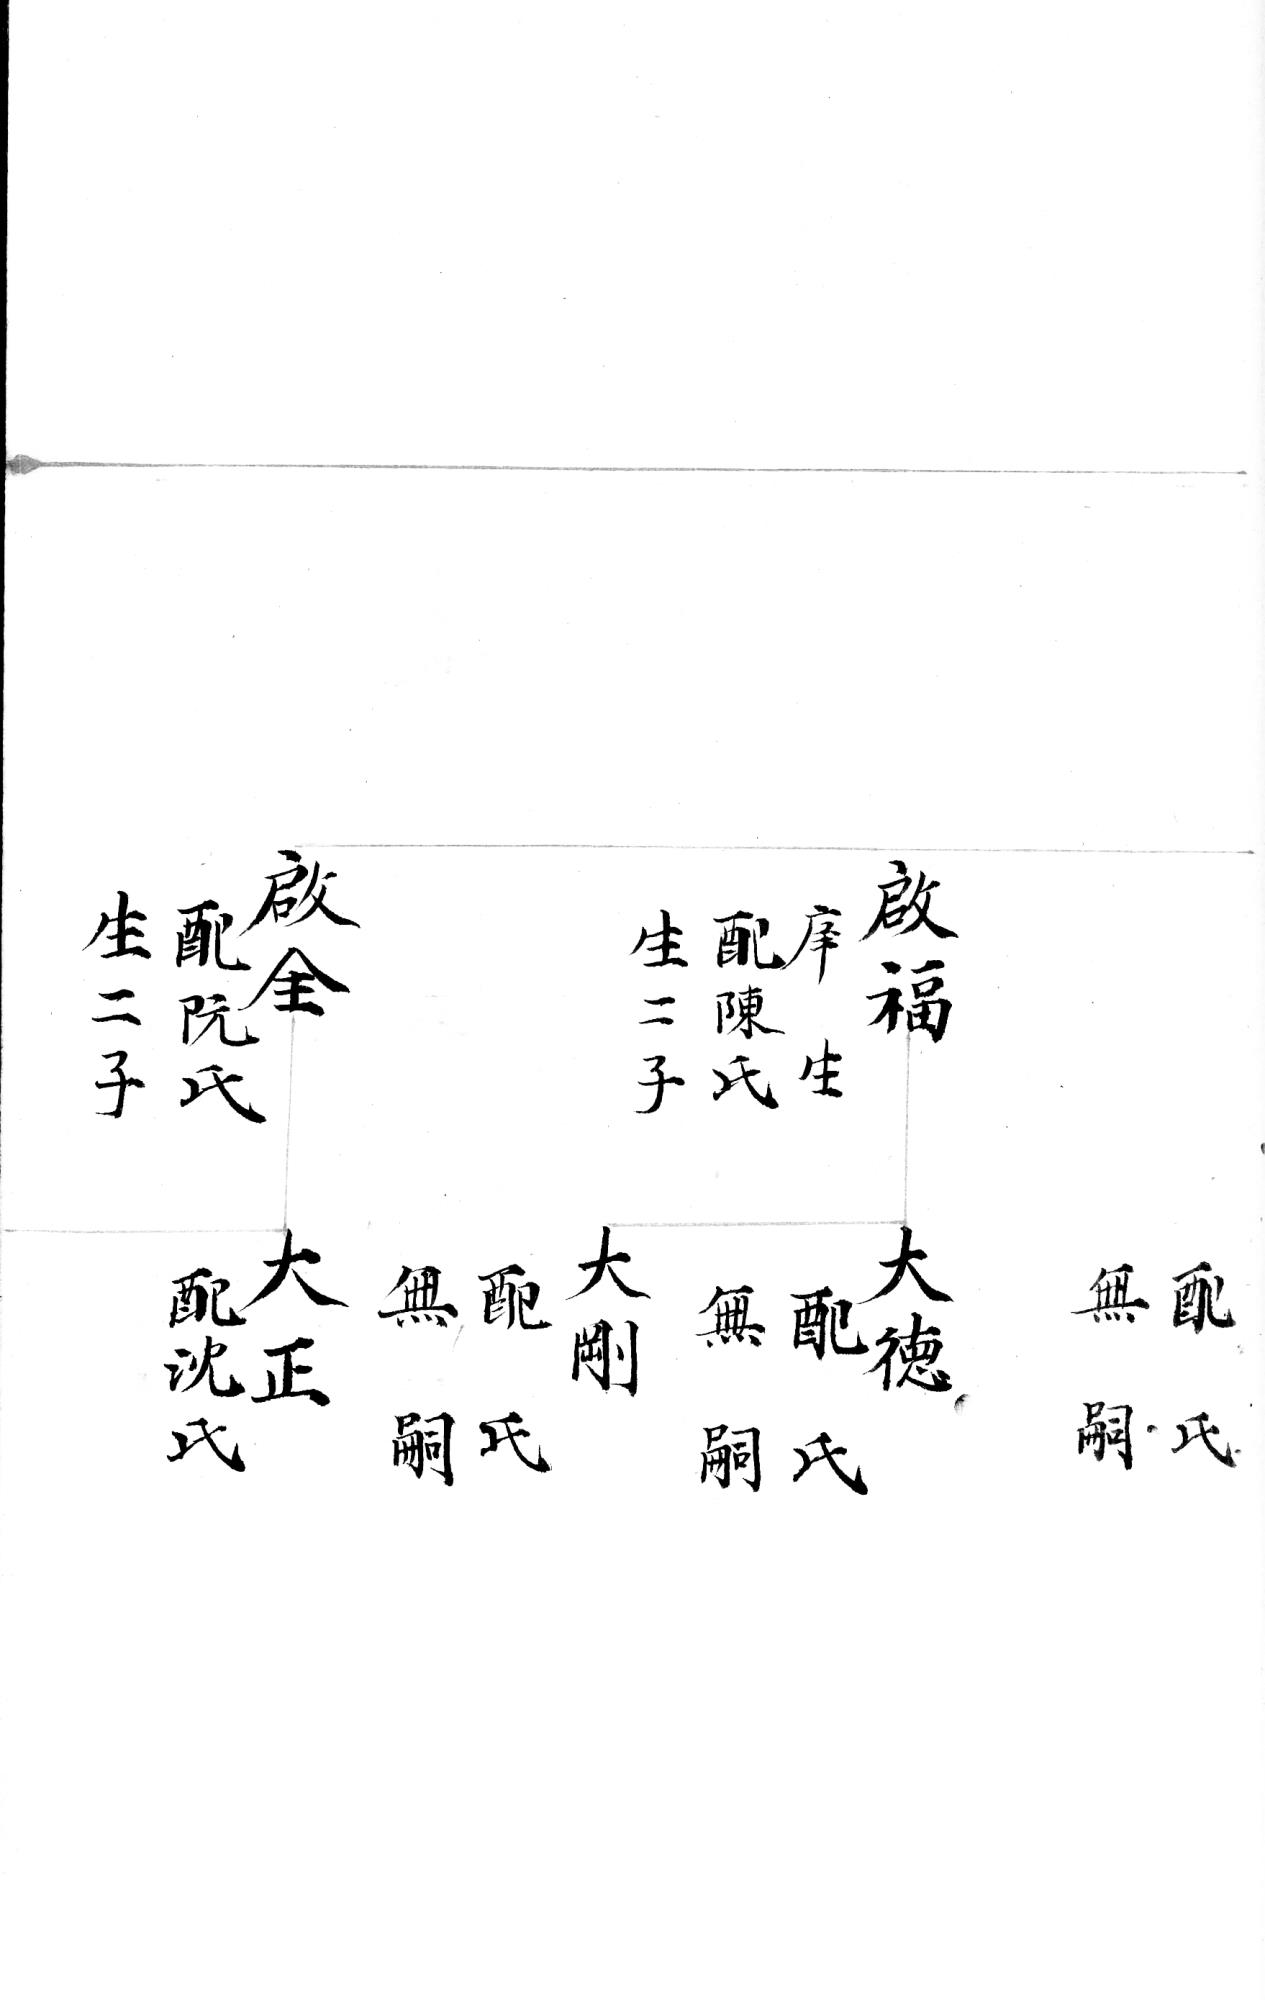 啟福
庠生
配陳氏
生二子
啟全
配阮氏
生二子
配 氏
無嗣
大德
配 氏
無嗣
大剛
配 氏
無嗣
大正
配沈氏